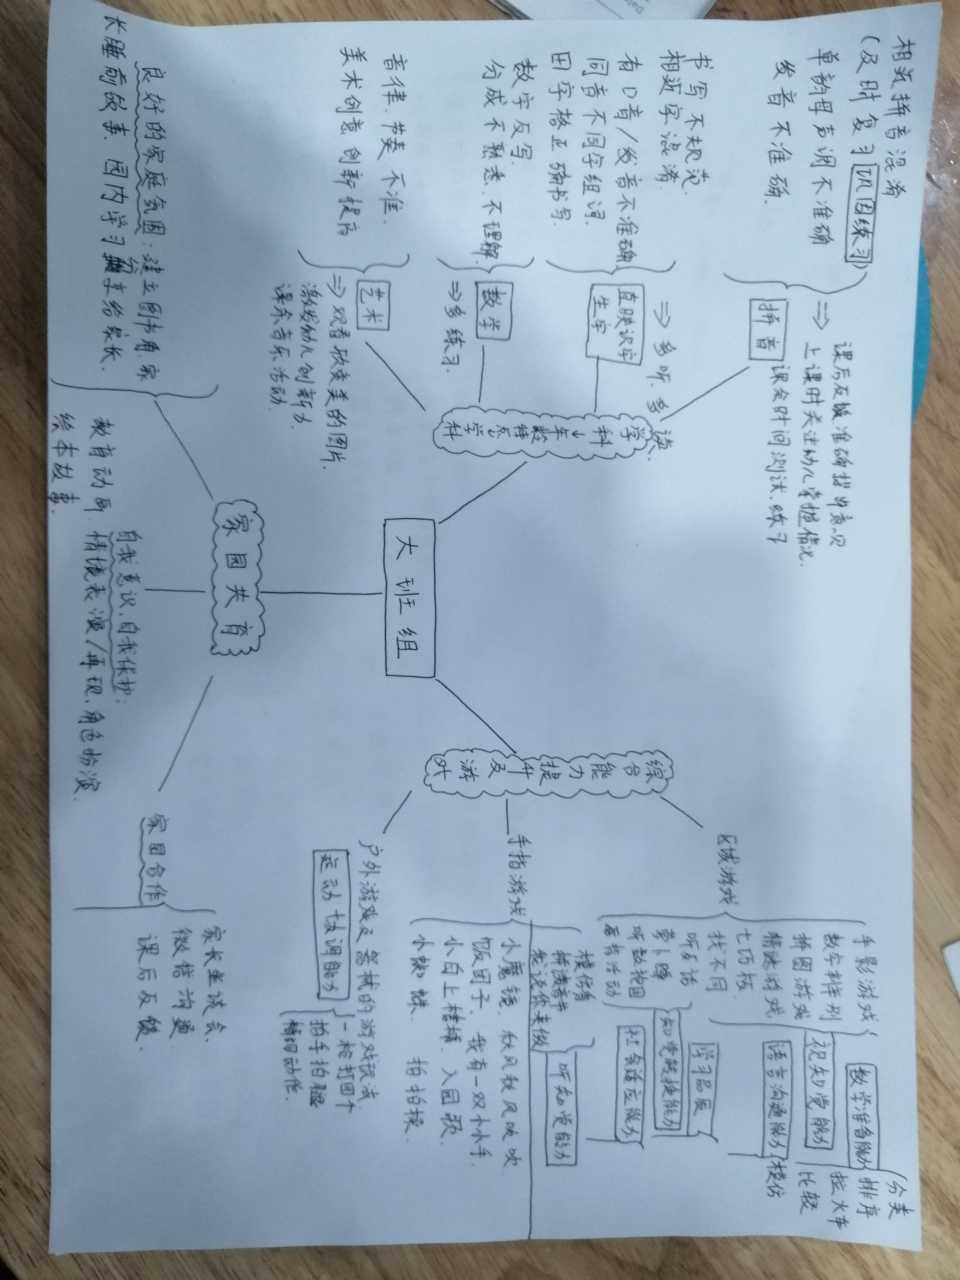 大班组
学科年龄特点↓学科
拼音
相近拼音混淆
(及时复习巩固练习)
单韵母声调不准确
发音不准确.
⇒ 课后反馈准确指导意见
上课时关注幼儿掌握情况.
课余时间测试、练习
直映识字
生字
书写不规范.
相近字混淆
有口音/发音不准确
同音不同字组词.
田字格正确书写.
⇒ 多听、多读.
数学
数字反写.
分成不熟悉、不理解.
⇒ 多练习.
艺术
音律、节奏不准.
美术创意创新提高
⇒ 观看欣赏美的图片.
激发幼儿创新力
课余音乐活动.
家园共育
良好的家庭氛围:建立图书角、家
长睡前故事、园内学习分享给家长.
自我意识、自我保护:
教育动画、情境表演/再现、角色扮演
绘本故事.
家园合作
家长座谈会.
微信沟通
课后反馈.
综合能力提升及游戏
区域游戏
手影游戏
数字排列
拼图游戏
情绪游戏
七巧板.
找不同
听反话
萝卜蹲
听数抱团
音乐活动
数学准备能力
分类
排序
拉火车
比较
视知觉能力
语言沟通能力
模仿
学习品质
知觉转换能力
社会适应能力
听知觉能力
我说你来做
手指游戏
小魔镜、秋风秋风吹吹
饭团子、我有一双小小手.
小白上楼梯、入园歌.
小蜘蛛、拍拍操.
户外游戏及器械的游戏尝试
运动协调能力
一枪打四个
拍手拍腿
精细动作.